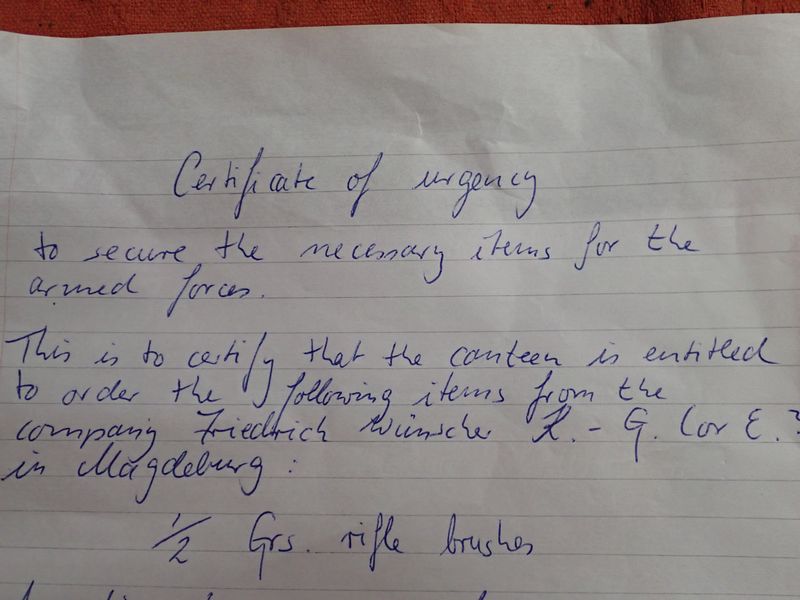 Certificate of urgency
to secure the necessary items for the
armed forces.
This is to certify that the canteen is entitled
to order the following items from the
company Friedrich Wünscher K. - G. (or E.?
in Magdeburg:
1/2 Grs. rifle brushes